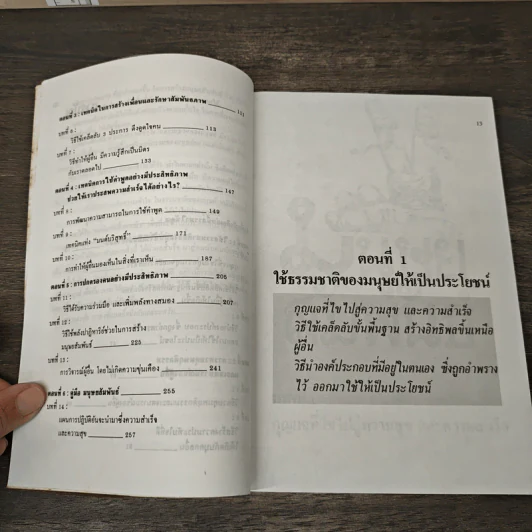 ตอนที่ 3 : เทคนิคในการสร้างเพื่อนและรักษาสัมพันธภาพ 111
บทที่ 6 :
วิธีใช้เคล็ดลับ 3 ประการ ดึงดูดใจคน 113
บทที่ 7 :
วิธีทำให้ผู้อื่น มีความรู้สึกเป็นมิตร
กับเราตลอดไป 133
ตอนที่ 4 : เทคนิคการใช้คำพูดอย่างมีประสิทธิภาพ
ช่วยให้เราประสบความสำเร็จได้อย่างไร? 147
บทที่ 8 :
การพัฒนาความสามารถในการใช้คำพูด 149
บทที่ 9 :
เทคนิคแห่ง "มนต์บริสุทธิ์" 171
บทที่ 10 :
การทำให้ผู้อื่นมองเห็นในสิ่งที่เราเห็น 187
ตอนที่ 5 : การปกครองคนอย่างมีประสิทธิภาพ 205
บทที่ 11 :
วิธีได้รับความร่วมมือ และเพิ่มพลังทางสมอง 207
บทที่ 12 :
วิธีใช้พลังปาฏิหาริย์ช่วยในการสร้าง
มนุษยสัมพันธ์ 225
บทที่ 13 :
การวิจารณ์ผู้อื่น โดยไม่เกิดความขุ่นเคือง 241
ตอนที่ 6 : คู่มือ มนุษยสัมพันธ์ 255
บทที่ 14 :
แผนการปฏิบัติอันจะนำมาซึ่งความสำเร็จ
และความสุข 257
13
ตอนที่ 1
ใช้ธรรมชาติของมนุษย์ให้เป็นประโยชน์
กุญแจที่ไขไปสู่ความสุข และความสำเร็จ
วิธีใช้เคล็ดลับขั้นพื้นฐาน สร้างอิทธิพลขึ้นเหนือ
ผู้อื่น
วิธีนำองค์ประกอบที่มีอยู่ในตนเอง ซึ่งถูกอำพราง
ไว้ ออกมาใช้ให้เป็นประโยชน์